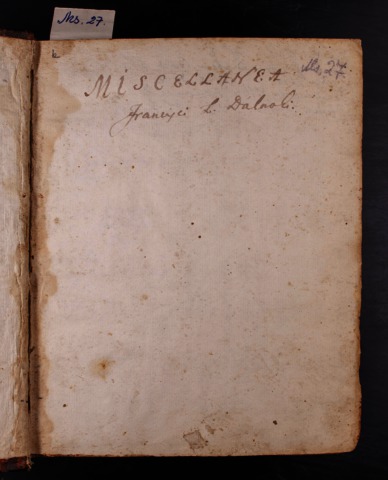 Ms. 27.
Ms. 27.
MISCELLANEA
Francisci L. Dalnoki.